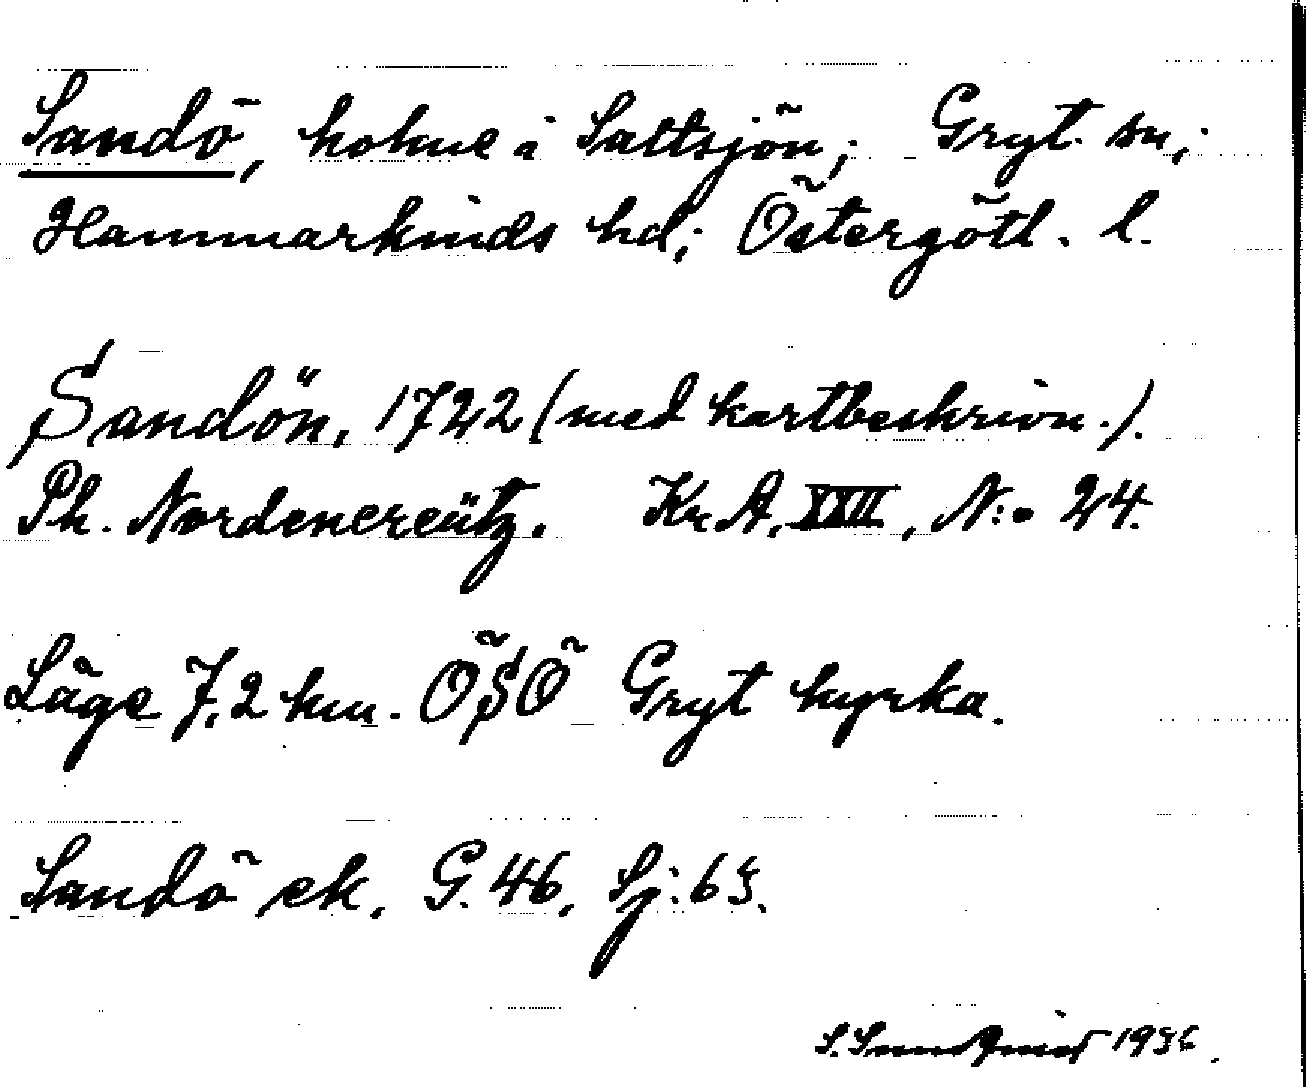 Sandö, holme i Saltsjön; Gryt sn;
Hammarkinds hd; Östergötl. l.
Sandön, 1722 (med kartbeskrivn.).
Ph. Nordencreütz. Kr.A. XXII, N:o 24.
Läge 7,2 km. ÖSÖ Gryt kyrka.
Sandö ek. G. 46, Sj: 65.
1936.